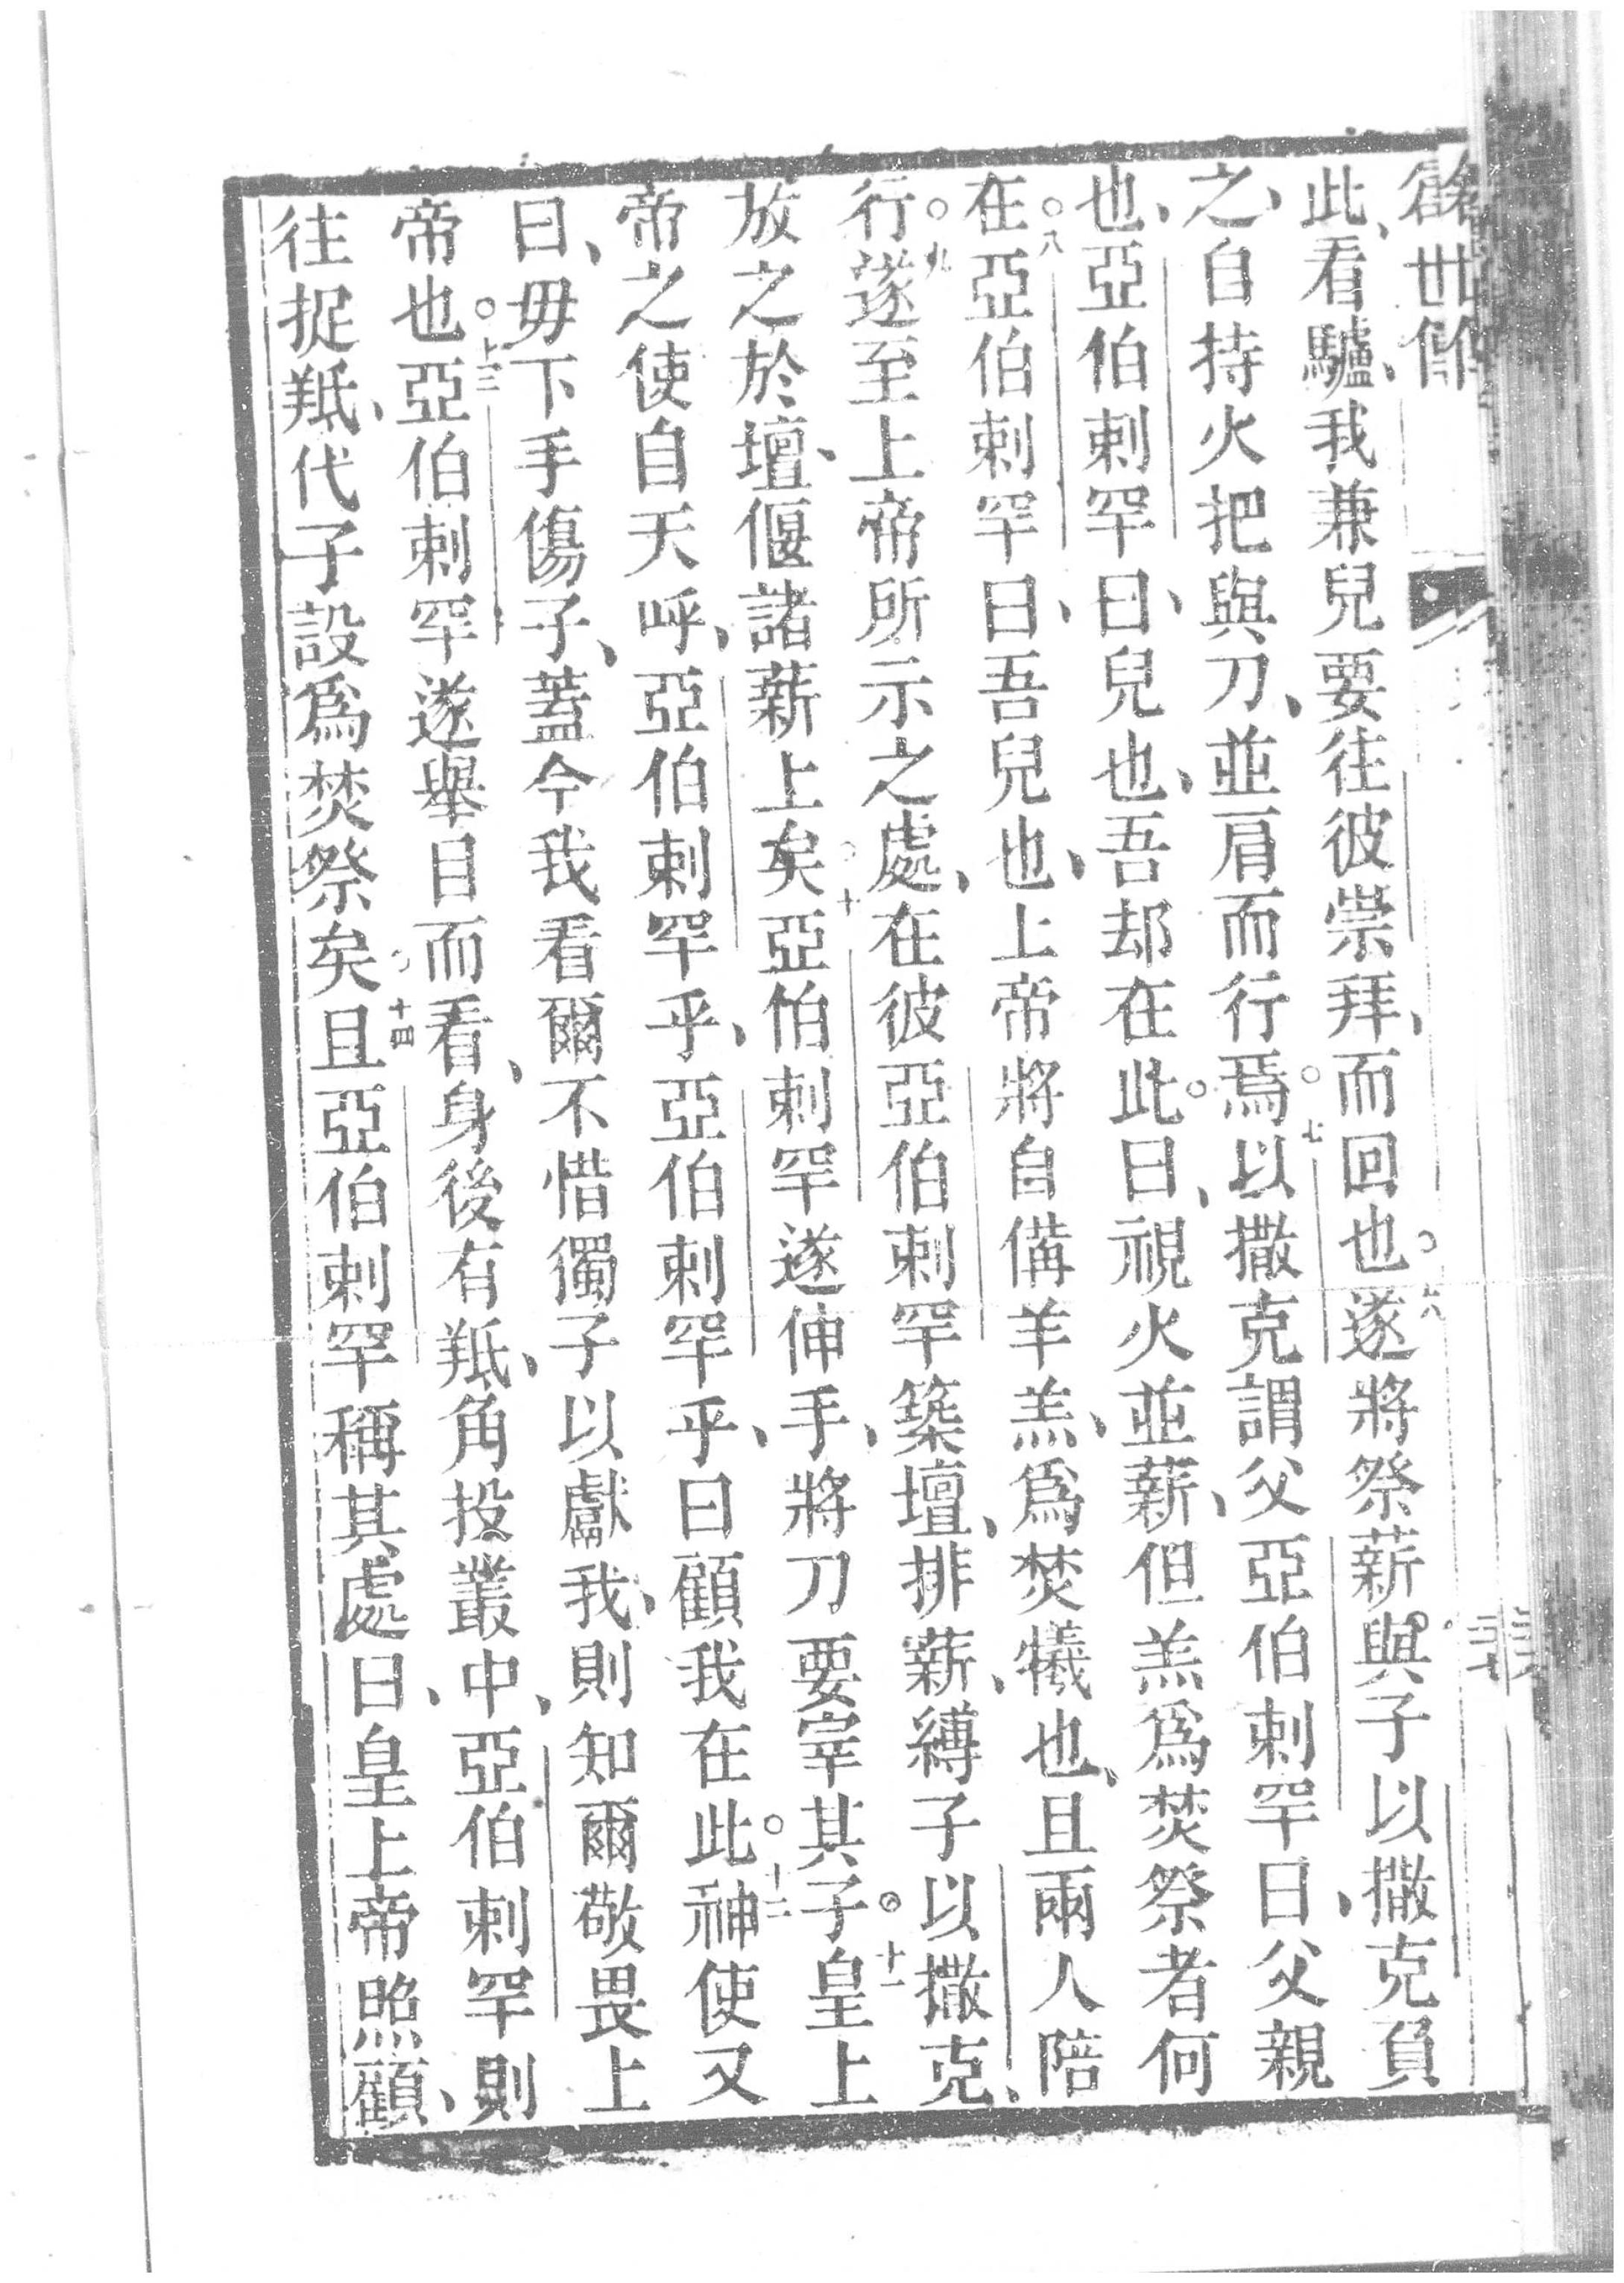 此、看驢、我兼兒要往彼崇拜、而回也。六遂將祭薪與子以撒克負
之、自持火把與刀、並肩而行焉。七以撒克謂父亞伯剌罕曰、父親
也、亞伯剌罕曰、兒也、吾却在此。曰、視火並薪、但羔爲焚祭者何
在。八亞伯剌罕曰、吾兒也、上帝將自備羊羔、爲焚犧也、且兩人陪
行。九遂至上帝所示之處、在彼亞伯剌罕築壇、排薪、縛子以撒克、
放之於壇、偃諸薪上矣。十亞伯剌罕遂伸手、將刀要宰其子。十一皇上
帝之使自天呼、亞伯剌罕乎、亞伯剌罕乎、曰顧我在此。十二神使又
曰、毋下手傷子、蓋今我看爾不惜獨子以獻我、則知爾敬畏上
帝也。十三亞伯剌罕遂舉目而看、身後有羝、羝角投叢中、亞伯剌罕則
往捉羝、代子設爲焚祭矣。十四且亞伯剌罕稱其處曰、皇上帝照顧、